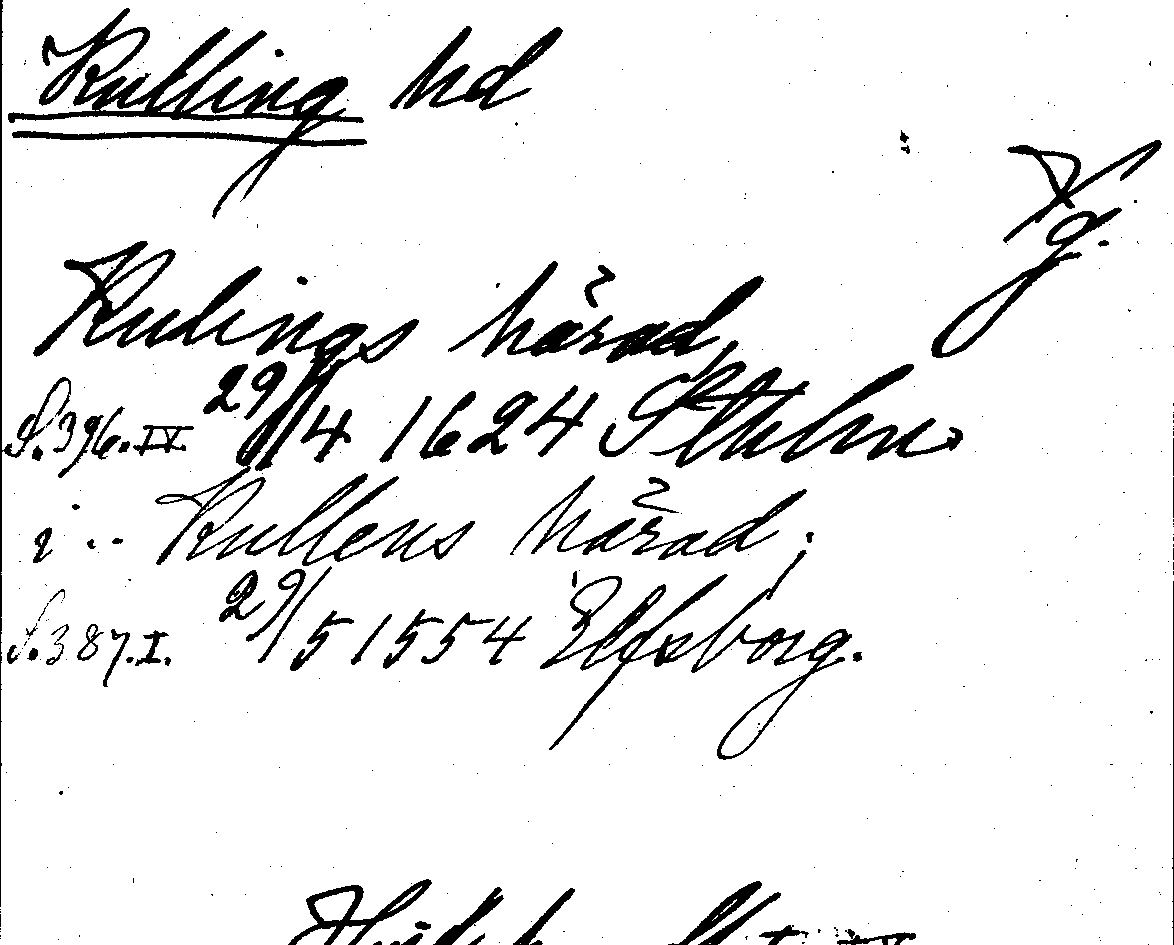 Kulling hd
Vg.
Kulings härad,
S. 396. IV. 29/4 1624 Sthlm
i .. Kullens härad;
S. 387. I. 29/5 1554 Elfsborg.